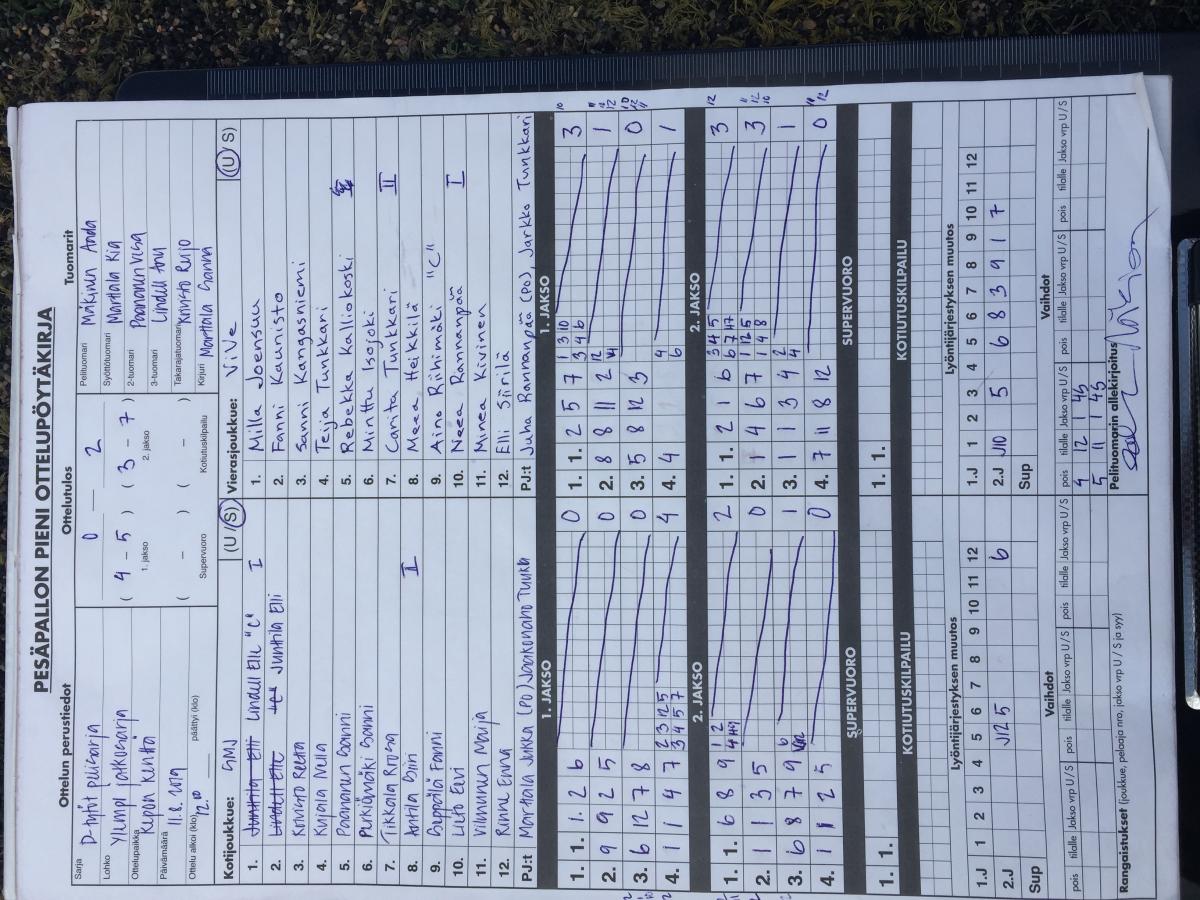 PESÄPALLON PIENI OTTELUPÖYTÄKIRJA
Ottelun perustiedot
Sarja D-tytöt pelisarja
Lohko Ylempi jatkosarja
Ottelupaikka Kepon Kenttä
Päivämäärä 11.8.2019
Ottelu alkoi (klo) 12.00 päättyi (klo)
Ottelutulos
0 2
( 4 - 5 ) ( 3 - 7 )
1. jakso 2. jakso
( - ) ( - )
Supervuoro Kotiutuskilpailu
Tuomarit
Pelituomari Mäkynen Anda
Syöttötuomari Marttala Kia
2-tuomari Paananen Vesa
3-tuomari Lindell Anu
Takarajatuomari Krivisto Reijo
Kirjuri Marttala Sanna
Kotijoukkue: SMJ (U / S)
1. Junttila Elli Lindell Elle "C" I
2. Lindell Elle Junttila Elli
3. Krivisto Reetta
4. Kujala Nella
5. Paananen Sanni
6. Purkiamäki Sanni
7. Tikkala Roosa
8. Anttila Siiri II
9. Seppälä Fanni
10. Lilto Eevi
11. Vilmunen Maija
12. Rinne Emma
PJ:t Marttala Jukka (PO) Jaakonaho Tuukka
Vierasjoukkue: ViVe (U / S)
1. Milla Joensuu
2. Fanni Kaunisto
3. Sanni Kangasniemi
4. Teija Tunkkari
5. Rebekka Kalliokoski
6. Minttu Isojoki
7. Carita Tunkkari II
8. Meea Heikkilä
9. Aino Riihimäki "C"
10. Neea Rannanpää I
11. Minea Kivinen
12. Elli Siirilä
PJ:t Juha Rannanpää (PO), Jarkko Tunkkari
1. JAKSO
1. 1. 1 2 6 0
2. 9 9 2 5 0
3. 6 12 7 8 0
4. 1 1 4 7 2 3 12 5 3 4 5 7 4
1. JAKSO
1. 1. 2 5 7 1 3 10 3 4 6 3
2. 8 8 11 2 12 1
3. 5 8 12 3 0
4. 4 4 6 1
2. JAKSO
1. 1. 6 8 9 1 2 2
2. 1 1 3 5 0
3. 6 8 7 9 6 1
4. 1 1 2 5 0
2. JAKSO
1. 1. 2 1 6 3 4 5 3
2. 1 4 6 7 1 12 5 1 4 8 3
3. 1 1 3 4 2 4 1
4. 7 11 8 12 0
SUPERVUORO
1. 1.
SUPERVUORO
1. 1.
KOTIUTUSKILPAILU
KOTIUTUSKILPAILU
Lyöntijärjestyksen muutos
1 2 3 4 5 6 7 8 9 10 11 12
1.J
2.J J12 5 6
Sup
Lyöntijärjestyksen muutos
1 2 3 4 5 6 7 8 9 10 11 12
1.J
2.J J10 5 6 8 3 9 1 7
Sup
Vaihdot
pois tilalle Jakso vrp U / S pois tilalle Jakso vrp U / S pois tilalle Jakso vrp U / S
Vaihdot
pois tilalle Jakso vrp U / S pois tilalle Jakso vrp U / S pois tilalle Jakso vrp U / S
4 12 1 4S
5 11 1 4S
Rangaistukset (joukkue, pelaaja nro, jakso vrp U / S ja syy)
Pelituomarin allekirjoitus